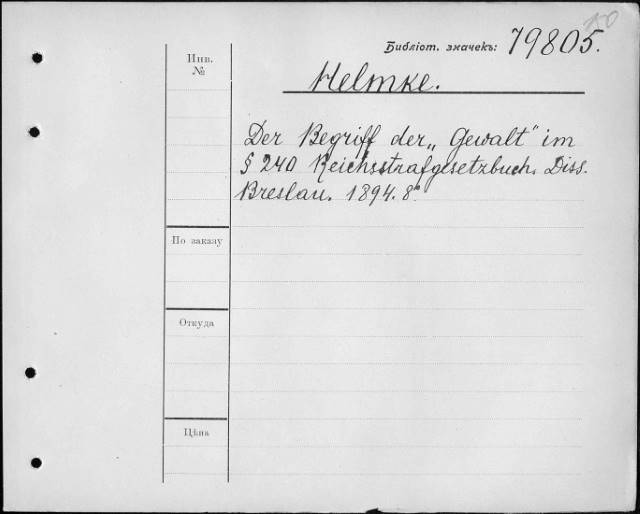 50
Библіот. значекъ: 79805.
Инв.
№
Helmke.
Der Begriff der „Gewalt" im
§ 240 Reichsstrafgesetzbuch. Diss.
Breslau. 1894. 8°.
По заказу
Откуда
Цѣна